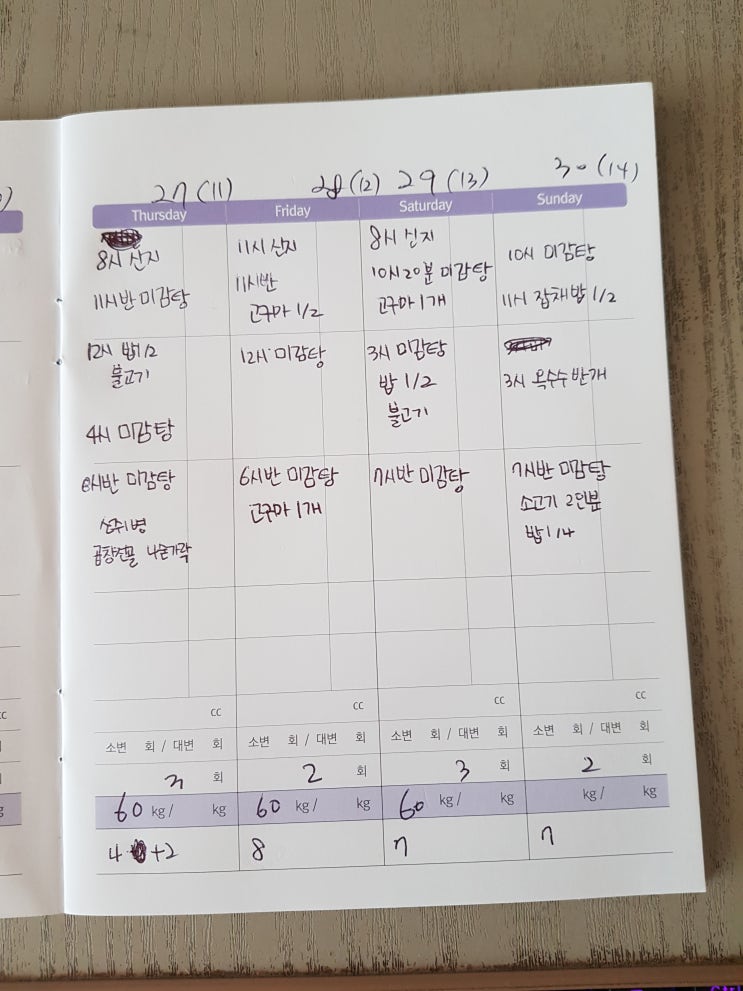 27 (11)
28 (12)
29 (13)
30 (14)
Thursday
Friday
Saturday
Sunday
8시 산지
11시반 미감탕
12시 밥1/2
불고기
4시 미감탕
6시반 미감탕
11시 산지
11시반
고구마 1/2
12시 미감탕
6시반 미감탕
고구마 1개
8시 산지
10시20분 미감탕
고구마 1개
3시 미감탕
밥 1/2
불고기
7시반 미감탕
10시 미감탕
11시 잡채밥 1/2
3시 옥수수 반개
7시반 미감탕
소고기 2인분
밥 1/4
cc cc cc cc
소변 회 / 대변 회 소변 회 / 대변 회 소변 회 / 대변 회 소변 회 / 대변 회
3 회 2 회 3 회 2 회
60 kg / kg 60 kg / kg 60 kg / kg kg / kg
4 +2 8 7 7